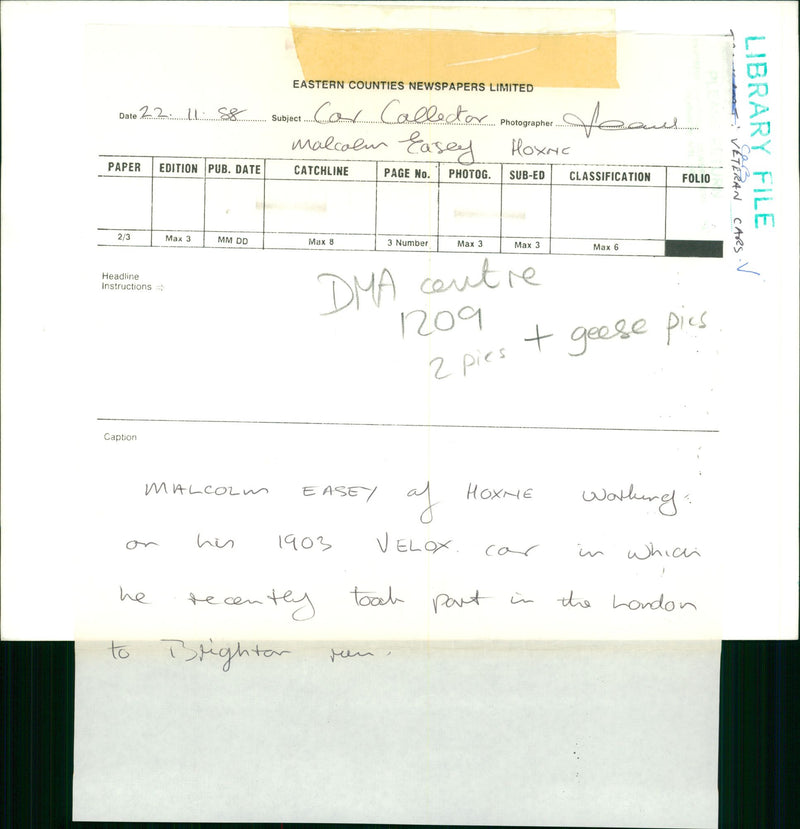 EASTERN COUNTIES NEWSPAPERS LIMITED
Date 22. 11. 88 Subject Car Collector Photographer
Malcolm Easey HOXNE
PAPER EDITION PUB. DATE CATCHLINE PAGE No. PHOTOG. SUB-ED CLASSIFICATION FOLIO
2/3 Max 3 MM DD Max 8 3 Number Max 3 Max 3 Max 6
Headline
Instructions
DMA centre
1209
2 pics + geese pics
Caption
MALCOLM EASEY of HOXNE working
on his 1903 VELOX car in which
he recently took part in the London
to Brighton run.
LIBRARY FILE
VETERAN CARS